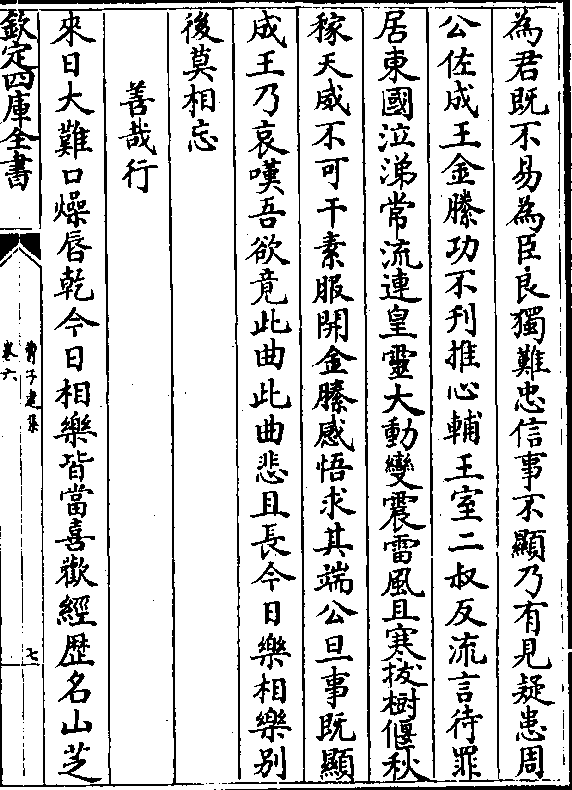 為君既不易為臣良獨難忠信事不顯乃有見疑患周
公佐成王金縢功不刊推心輔王室二叔反流言待罪
居東國泣涕常流連皇靈大動變震雷風且寒拔樹偃秋
稼天威不可干素服開金縢感悟求其端公旦事既顯
成王乃哀嘆吾欲竟此曲此曲悲且長今日樂相樂別
後莫相忘
善哉行
來日大難口燥唇乾今日相樂皆當喜歡經歴名山芝
欽定四庫全書
曹子建集
卷六
七